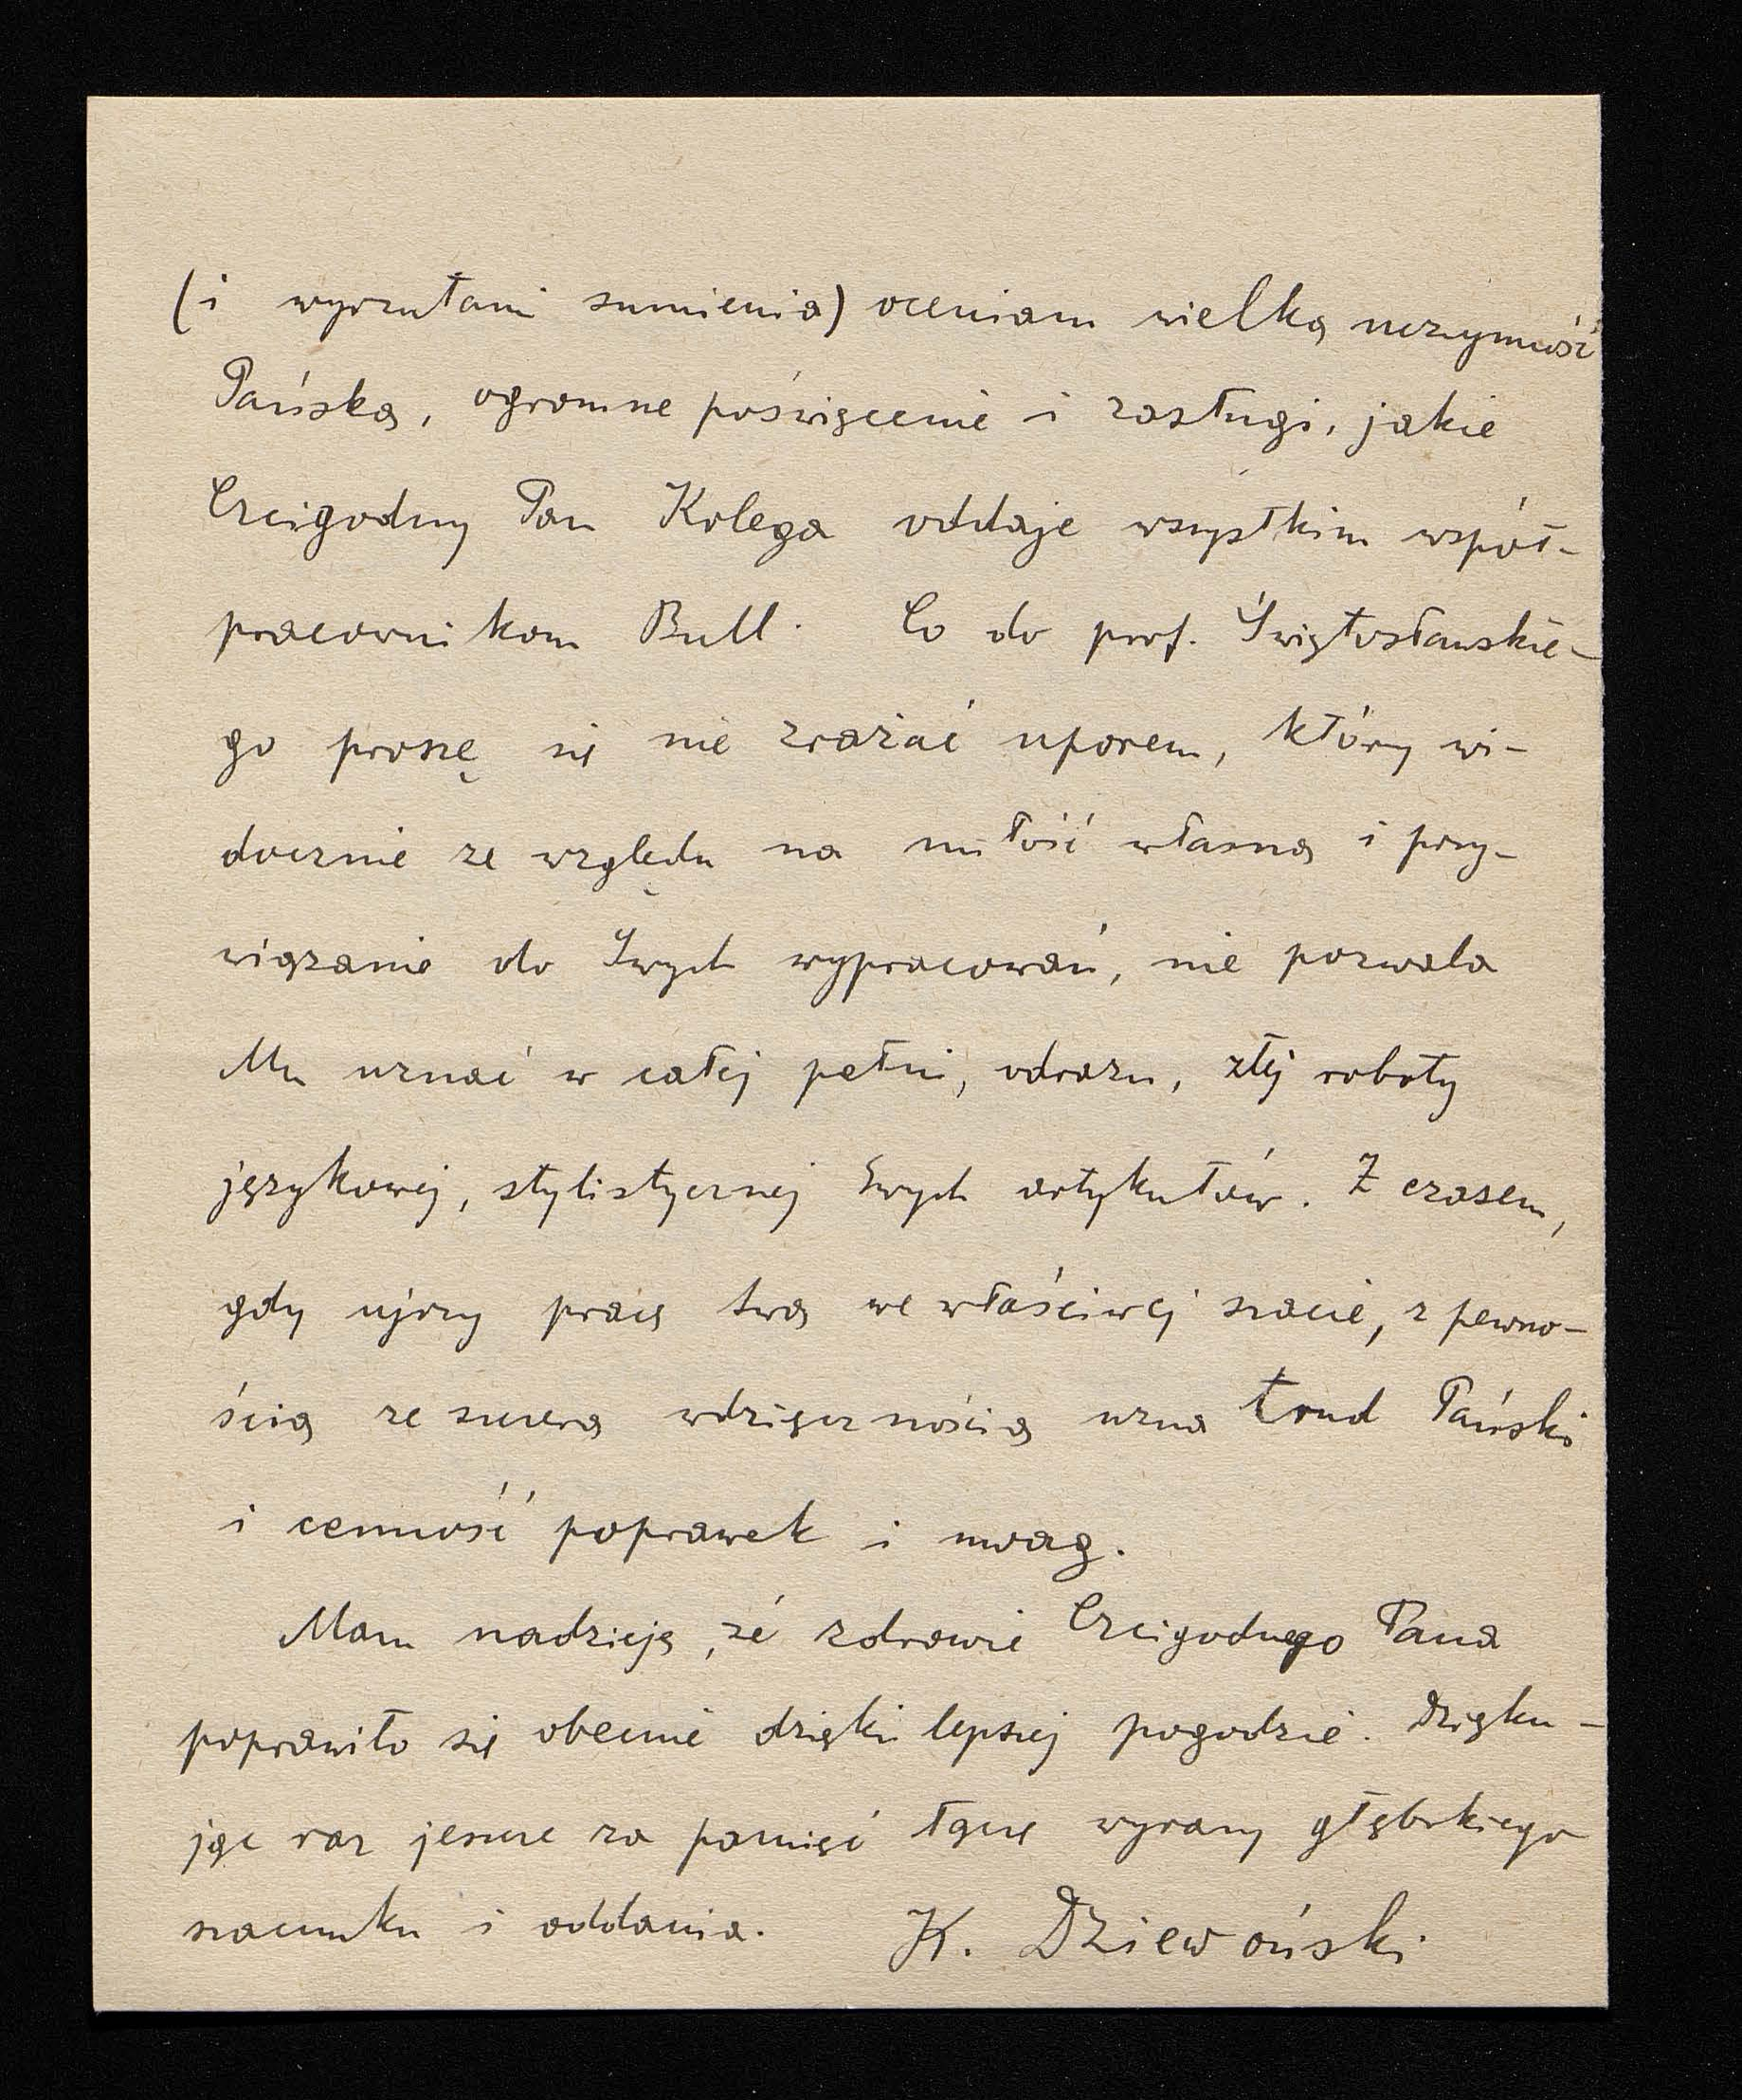 (i wyrzutami sumienia) oceniam wielką uczynność
Pańską, ogromne poświęcenie i zasługi, jakie
Czcigodny Pan Kolega oddaje wszystkim współ-
pracownikom Bull. Co do prof. Świętosławskie-
go proszę się nie zrażać uporem, który wi-
docznie ze względu na miłość własną i przy-
wiązanie do Swych wypracowań, nie pozwala
Mu uznać w całej pełni, odrazu, złej roboty
językowej, stylistycznej Swych artykułów. Z czasem,
gdy ujrzy pracę swą we właściwej szacie, z pewno-
ścią ze szczerą wdzięcznością uzna trud Pański
i cenność poprawek i uwag.
Mam nadzieję, że zdrowie Czcigodnego Pana
poprawiło się obecnie dzięki lepszej pogodzie. Dzięku-
jąc raz jeszcze za pamięć łączę wyrazy głębokiego
szacunku i oddania. K. Dziewoński